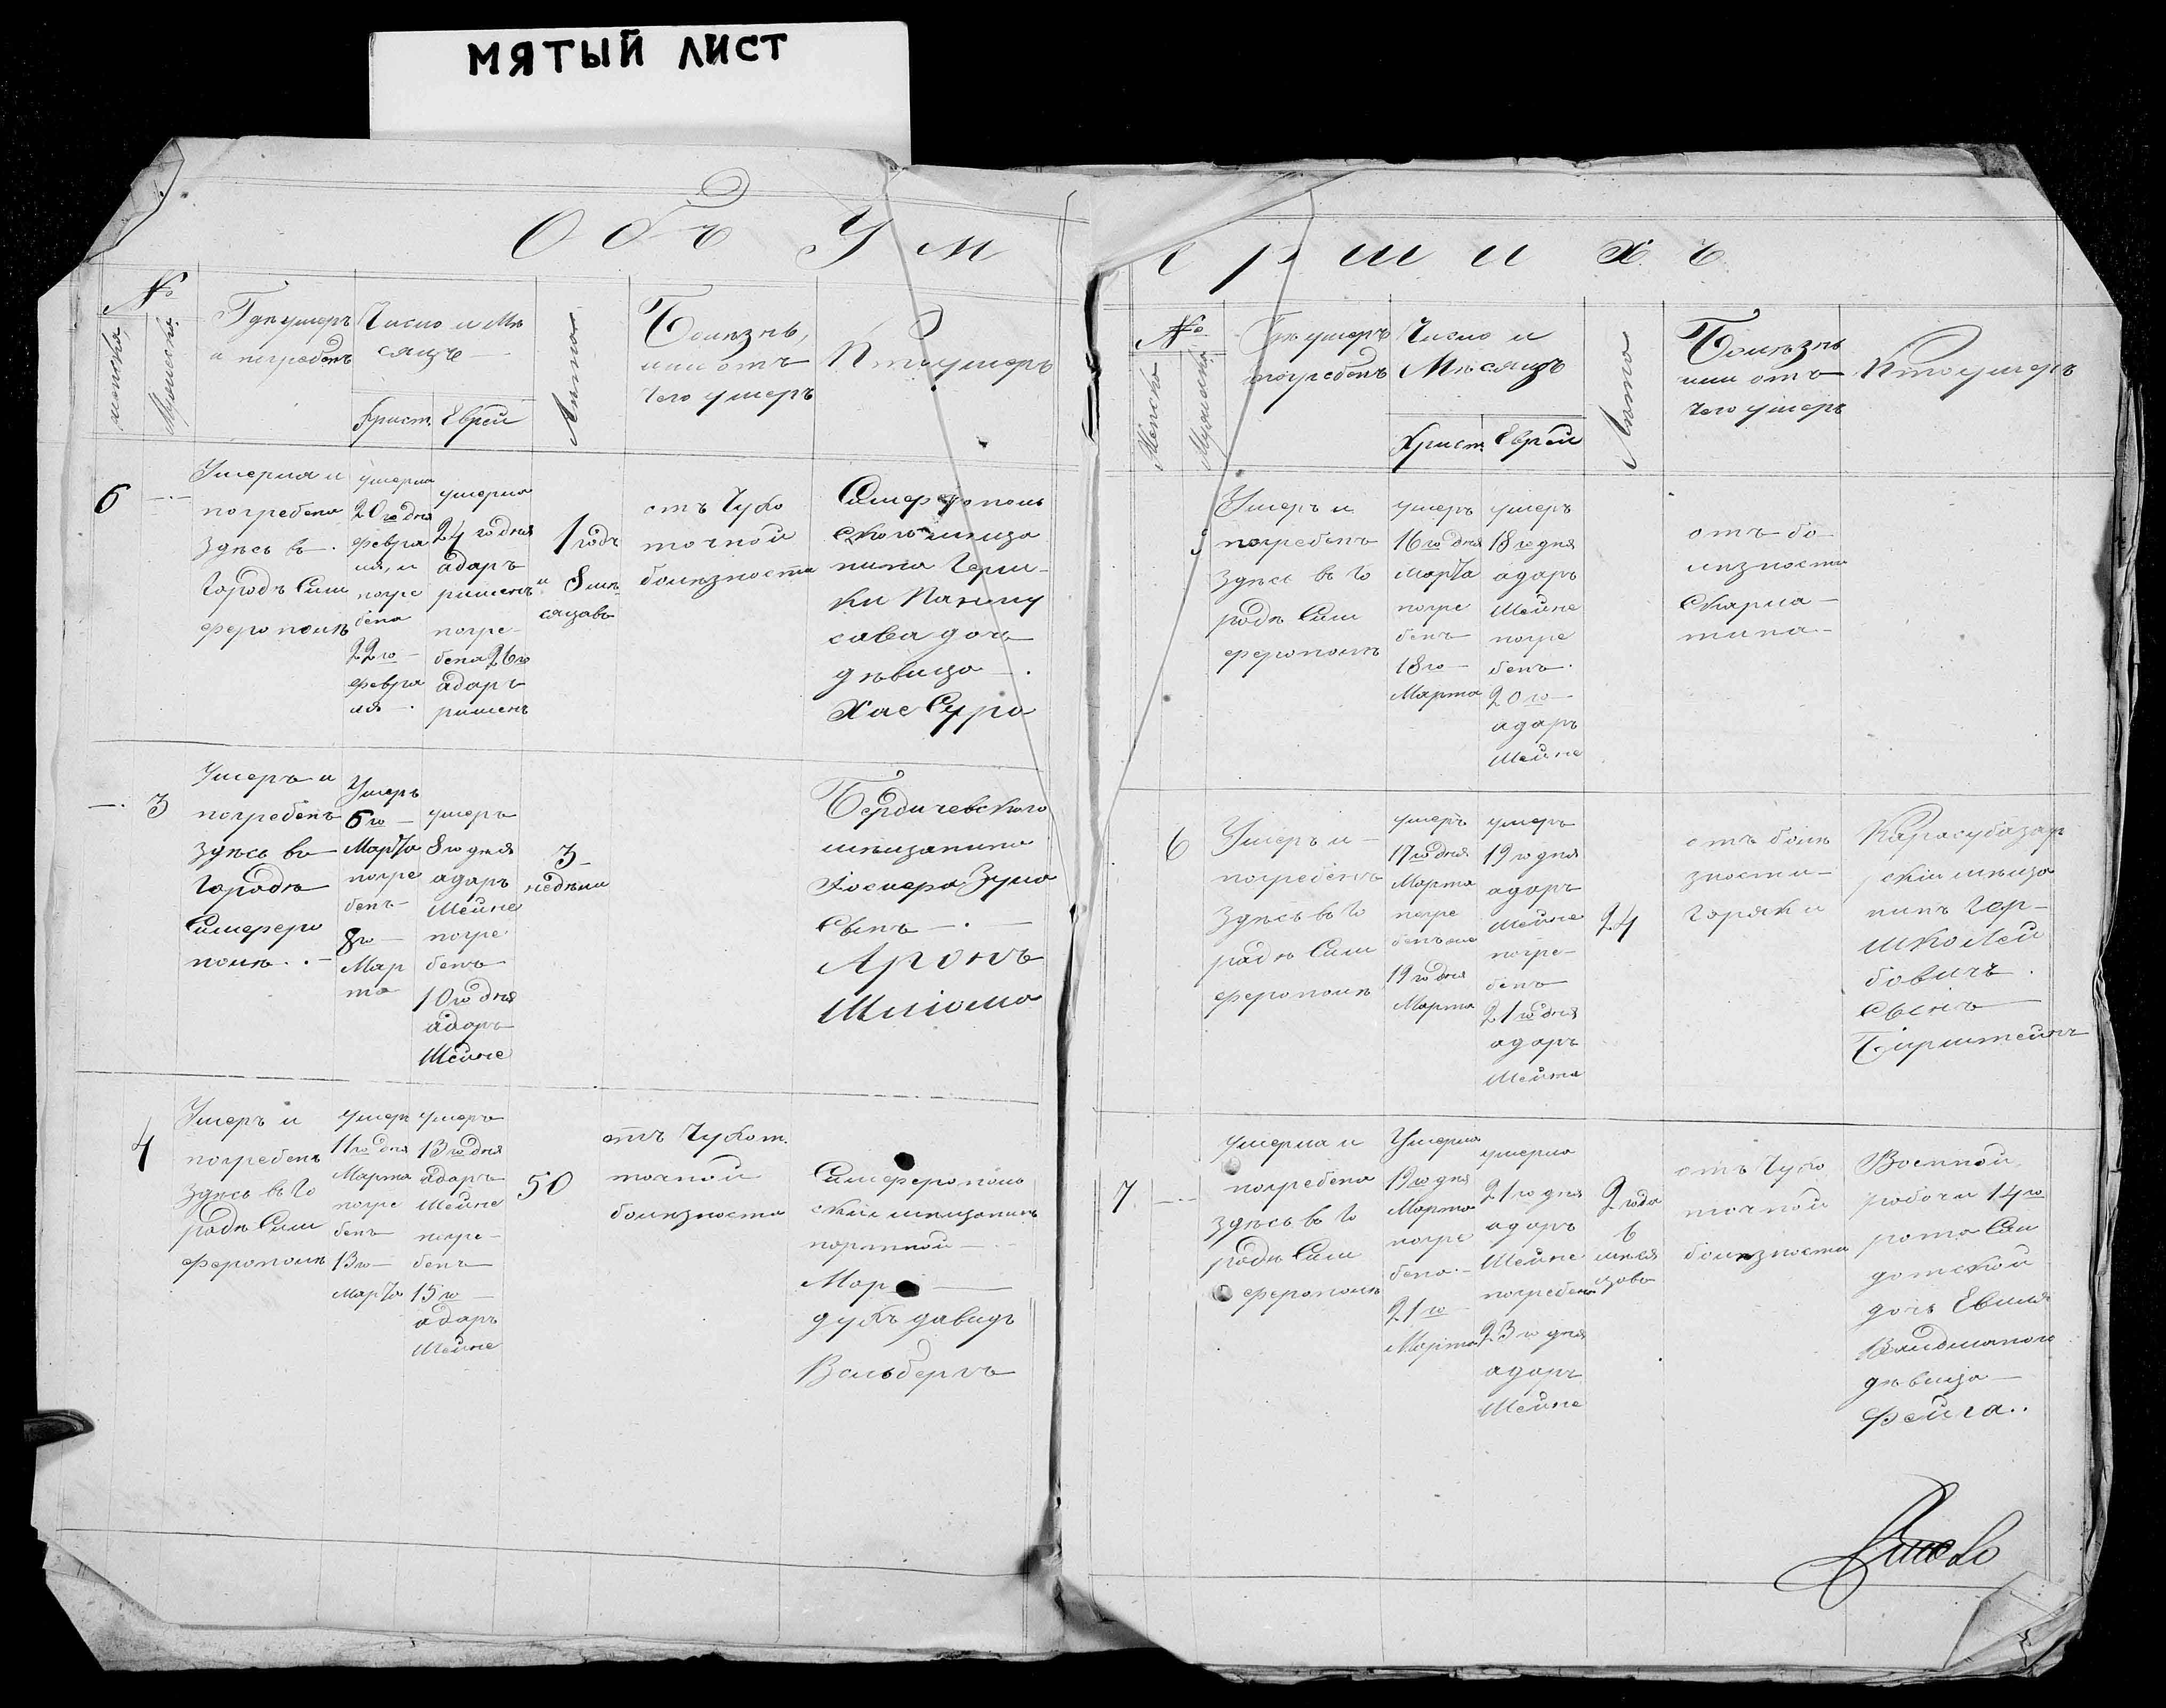 МЯТЫЙ ЛИСТ
Объ Ум
№
женска
Мужеска
Гдѣ умеръ
и погребенъ
Число и Мѣ
сяцъ
Христ.
Еврей
Лѣта
Болѣзнь,
или отъ
чего умеръ
Кто умеръ
6
Умерла и
погребена
здѣсь въ
Городѣ Сим
ферополѣ
умерла
20го дня
февра
ля, и
погре
бена
22го
февра
ля
умерла
24 го дня
адаръ
ришенъ
погре-
бена 26го
адаръ
ришенъ
1 годъ
и 8 мѣ
сяцовъ
отъ Чухо
точной
болѣзности
Симферополь
ского мѣща
нина Герш-
ки
дочь
дѣвица
Хае Сура
3
Умеръ и
погребенъ
здѣсь въ
Городѣ
Симферо
полѣ
Умеръ
6го
Марта
погре
бенъ
8го
Мар
та
умеръ
8го дня
адаръ
Шейне
погре
бенъ
10го дня
адаръ
Шейне
3
недѣли
Бердичевского
мѣщанина
Сынъ
Аронъ
Шліома
4
Умеръ и
погребенъ
здѣсь въ Го
родѣ Сим
ферополѣ
умеръ
11го дня
Марта
погре
бенъ
13го
Марта
умеръ
13го дня
адаръ
Шейне
погре-
бенъ
15го
адаръ
Шейне
50
отъ Чухот.
точной
болѣзности
Симферополь
скій мѣщанинъ
портной
Мор
духъ давидъ
Вольбергъ
ершихъ
№
Женска
Мужеска
Гдѣ умеръ
погребенъ
Число и
Мѣсяцъ
Христ.
Еврей
Лѣта
Болѣзнь
или отъ
чего умеръ
Кто умеръ
Умеръ и
погребенъ
здѣсь въ Го
родѣ Сим
ферополѣ
умеръ
16го дня
Марта
погре
бенъ
18го
Марта
умеръ
18го дня
адаръ
Шейне
погре
бенъ
20го
адаръ
Шейне
отъ бо
лѣзности
Скарла-
тина
6
Умеръ и
погребенъ
здѣсь въ Го
родѣ Сим
ферополѣ
умеръ
17го дня
Марта
погре
19го дня
Марта
умеръ
19го дня
адаръ
Шейне
погре-
бенъ
21го дня
адаръ
Шейне
24
отъ болѣ
зности
Горячки
Карасубазар
скій мѣща
нинъ Гер-
шко Лей
бовичъ
Сынъ
7
умерла и
погребена
здѣсь въ Го
родѣ Сим
ферополѣ
Умерла
19го дня
Марта
погре
бена
21го
Марта
умерла
21го дня
адаръ
Шейне
погребена
23го дня
адаръ
Шейне
2 года
6
мѣся
цовъ
отъ Чухо
точной
болѣзности
Военной
робочи 14го
дочь
дѣвица
Фейга